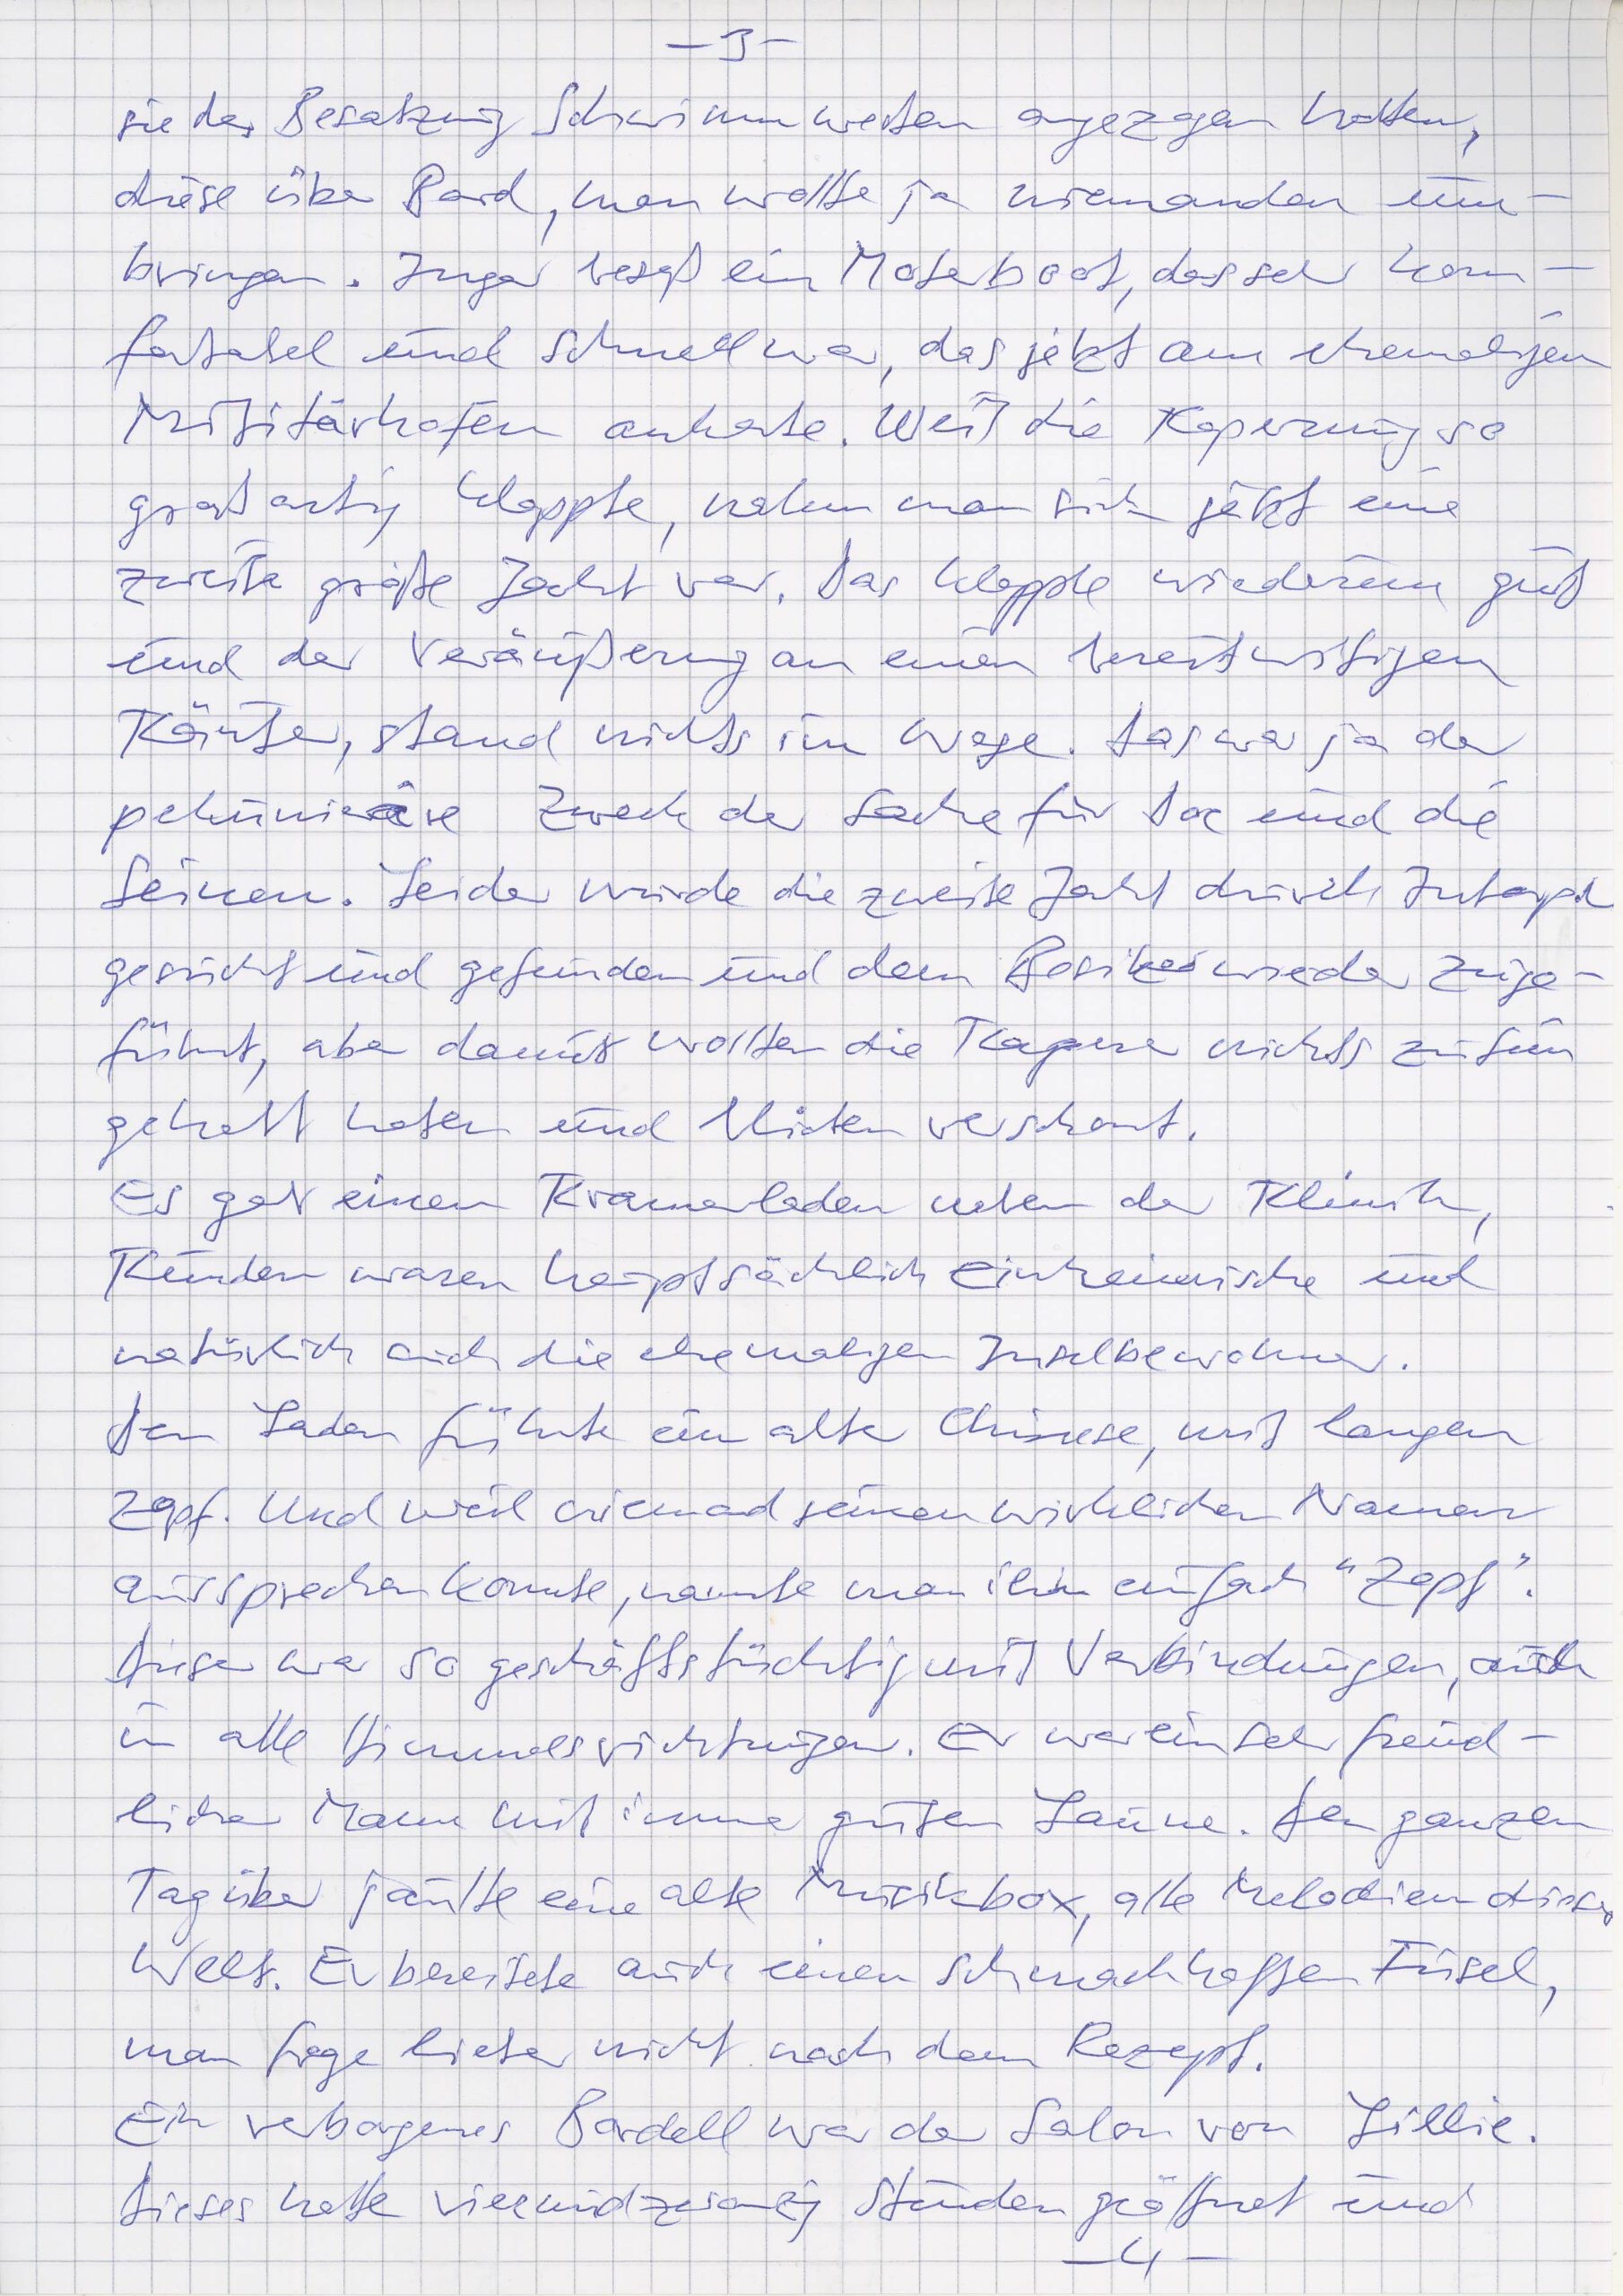 -3-
sie der Besatzung Schwimmwesten angezogen hatten,
diese über Bord, man wollte ja niemanden um-
bringen. Inger besaß ein Motorboot, das sehr kom-
fortabel und schnell war, das jetzt am ehemaligen
Militärhafen ankerte. Weil die Kaperung so
großartig klappte, nahm man sich jetzt eine
zweite große Jacht vor. Das klappte wiederum gut
und der Veräußerung an einen bereitwilligen
Käufer, stand nichts im Wege. Das war ja der
pekuniäre Zweck der Sache für Doc und die
Seinen. Leider wurde die zweite Jacht durch Interpol
gesucht und gefunden und dem Besitzer wieder zuge-
führt, aber damit wollten die Kaperer nichts zu tun
gehabt haben und blieben verschont.
Es gab einen Kramerladen neben der Klinik,
Kunden waren hauptsächlich Einheimische und
natürlich auch die ehemaligen Inselbewohner.
Den Laden führte ein alter Chinese, mit langen
Zopf. Und weil niemad seinen wirklichen Namen
aussprechen konnte, nannte man ihn einfach "Zopf".
Dieser war so geschäftstüchtig mit Verbindungen, auch
in alle Himmelsrichtungen. Er war ein sehr freund-
licher Mann mit immer guten Laune. Den ganzen
Tag über jaulte eine alte Musikbox, alle Melodien dieser
Welt. Er bereitete auch einen schmackhaften Fusel,
man frage lieber nicht nach dem Rezept.
Ein verborgenes Bordell war der Salon von Lillie.
Dieses hatte vierundzwanzig Stunden geöffnet und
-4-